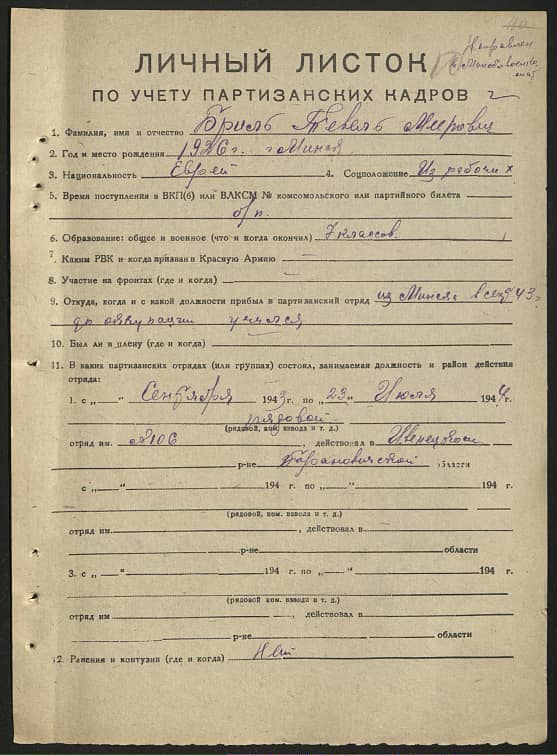 40
Направлен
в
ЛИЧНЫЙ ЛИСТОК
ПО УЧЕТУ ПАРТИЗАНСКИХ КАДРОВ
1. Фамилия, имя и отчество Бриль Тевель Меерович
2. Год и место рождения 1926 г. г. Минск
3. Национальность Еврей 4. Соцположение Из рабочих
5. Время поступления в ВКП(б) или ВЛКСМ № комсомольского или партийного билета
б/п.
6. Образование: общее и военное (что и когда окончил) 7 классов.
7. Каким РВК и когда призван в Красную Армию —
8. Участие на фронтах (где и когда) —
9. Откуда, когда и с какой должности прибыл в партизанский отряд из Минска в сент 43 г.
до оккупации учился
10. Был ли в плену (где и когда)
11. В каких партизанских отрядах (или группах) состоял, занимаемая должность и район действия
отряда:
1. с „ “ Сентября 1943 г. по „23“ Июля 1944 г.
рядовой
(рядовой, ком. взвода и т. д.)
отряд им. 106, действовал в Ивенецком
р-не Барановичской области
с „ “ 194 г. по „ “ 194 г.
(рядовой, ком. взвода и т. д.)
отряд им. , действовал в
р-не области
3. с „ “ 194 г. по „ “ 194 г.
(рядовой, ком. взвода и т. д.)
отряд им , действовал в
р-не области
2. Ранения и контузии (где и когда) Нет